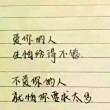 爱你的人
生怕给得不够
不爱你的人
就怕你要求太多